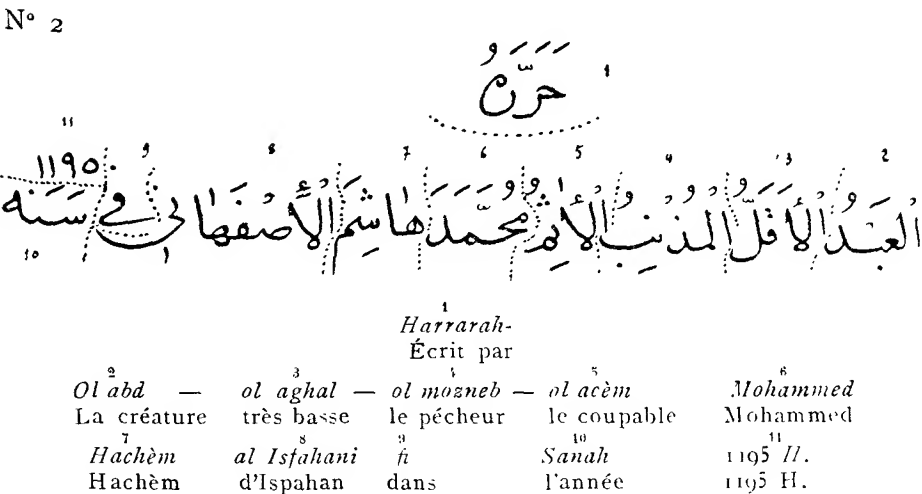 N° 2
حَرَّرَهُ 1
11 9 8 7 6 5 4 3 2
الْعَبْدُ الْأَقَلُّ الْمُذْنِبُ الْأَثِمُ مُحَمَّدَ هَاشِمَ الْأَصْفَهَانِي فِي سَنَه ١١٩٥
10
1
Harrarah-
Écrit par
2 3 4 5 6
Ol abd — ol aghal — ol mozneb — ol acèm Mohammed
La créature très basse le pécheur le coupable Mohammed
7 8 9 10 11
Hachèm al Isfahani fi Sanah 1195 H.
Hachèm d'Ispahan dans l'année 1195 H.